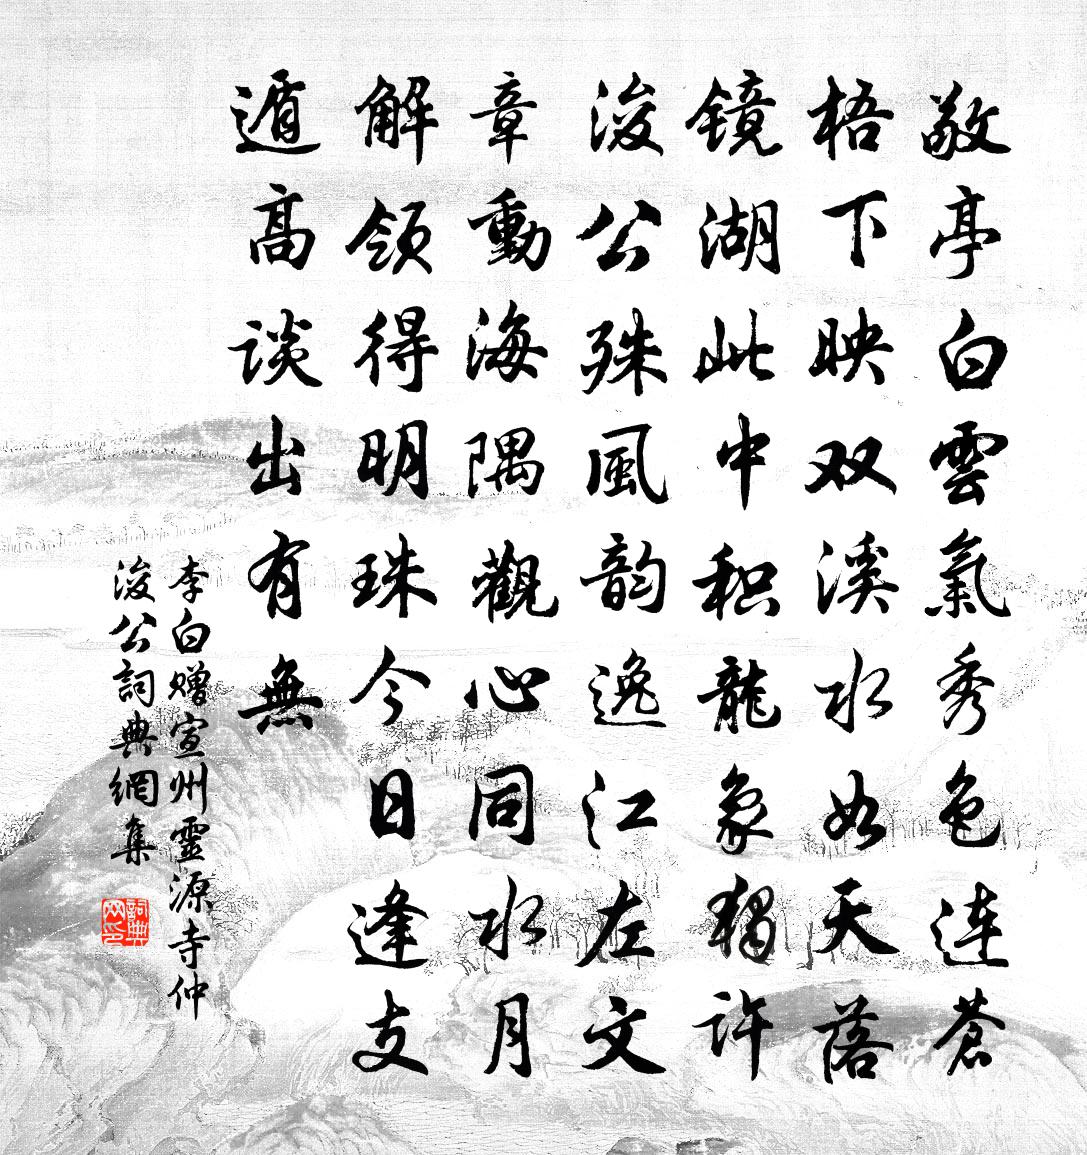 敬亭白雲氣秀色連蒼
梧下映双溪水如天落
镜湖此中积龍象獨许
浚公殊風韵逸江左文
章動海隅觀心同水月
解领得明珠今日逢支
遁高谈出有無
李白赠宣州靈源寺仲
浚公詞典網集
詞典网印